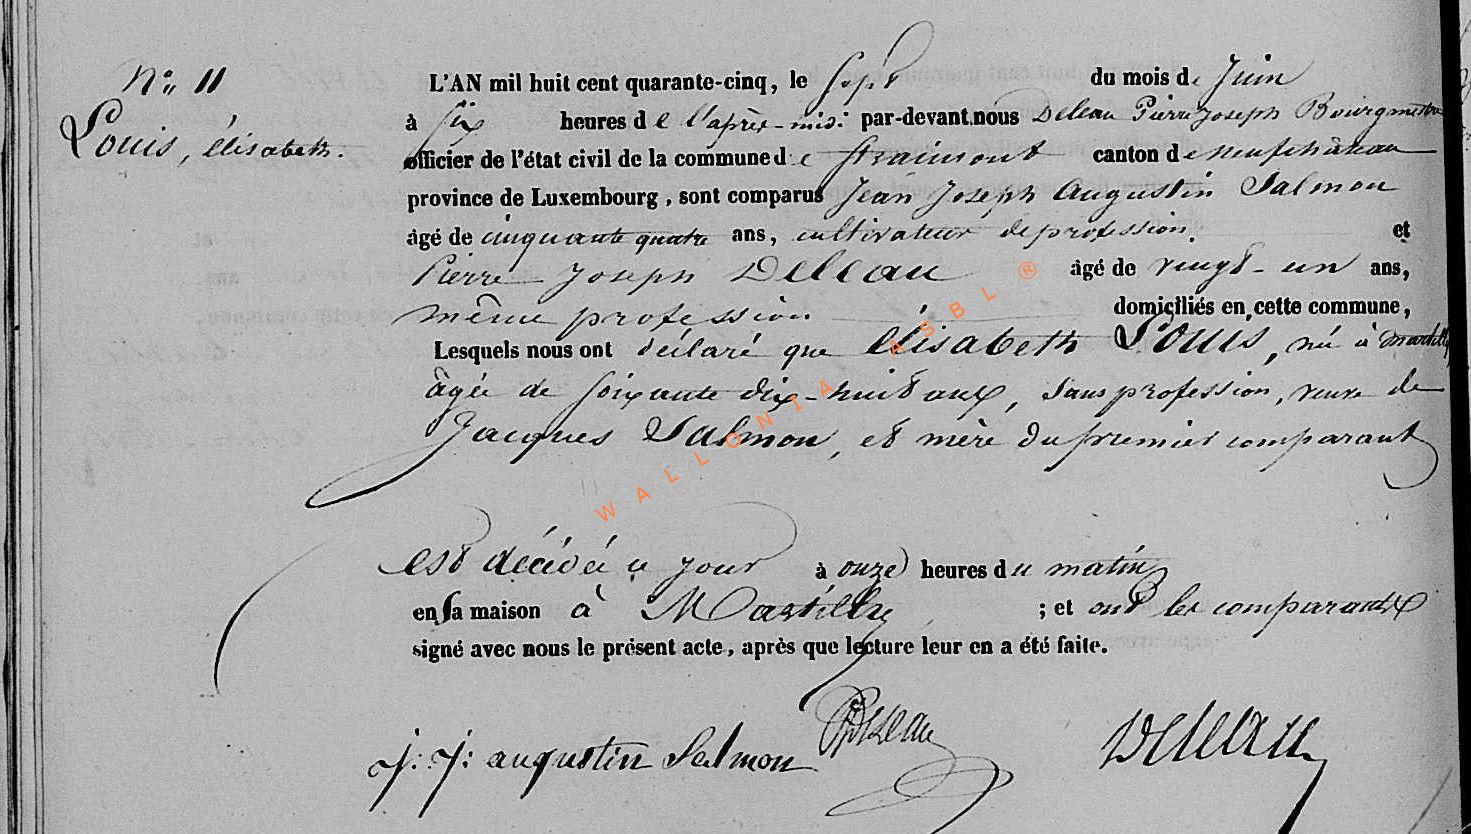 N° 11
Louis, élisabeth.
L'AN mil huit cent quarante-cinq, le sept du mois de Juin
à six heures de l'après-midi par-devant nous Deleau Pierre Joseph Bourgmestre
officier de l'état civil de la commune de Straimont canton de neufchâteau
province de Luxembourg, sont comparus Jean Joseph Augustin Salmon
âgé de cinquante quatre ans, cultivateur de profession. et
Pierre Joseph Deleau âgé de vingt-un ans,
même profession domiciliés en cette commune,
Lesquels nous ont déclaré que élisabeth Louis, né à martilly
âgée de soixante dix-huit ans, sans profession, veuve de
Jacques Salmon, et mère du premier comparant
est décédé ce jour à onze heures du matin
en sa maison à Martilly ; et ont les comparants
signé avec nous le présent acte, après que lecture leur en a été faite.
J: J: augustin Salmon Deleau Deleau
WALLONIA ASBL ®